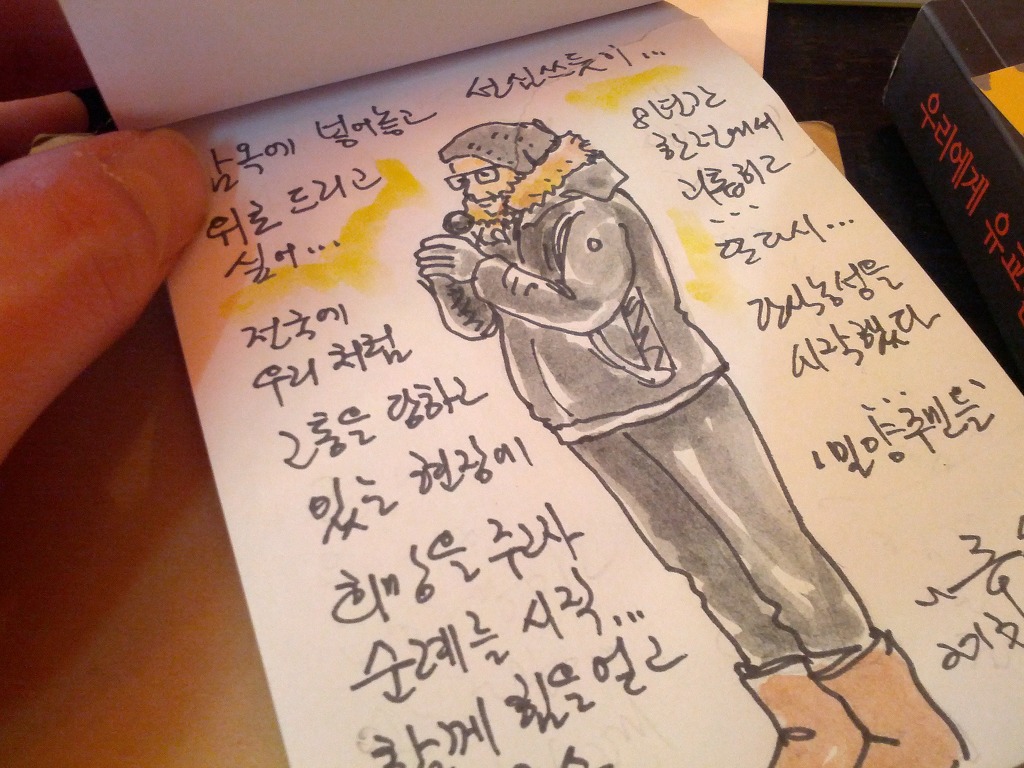 감옥에 넣어놓고 선심쓰듯이...
위로 드리고
싶어...
전국에
우리 처럼
고통을 당하고
있는 현장에
희망을 주고자
순례를 시작...
함께 힘을 얻고
8년간
한전에서
괴롭히고
...
또 다시...
단식농성을
시작했다
밀양주민들
우리에게 유